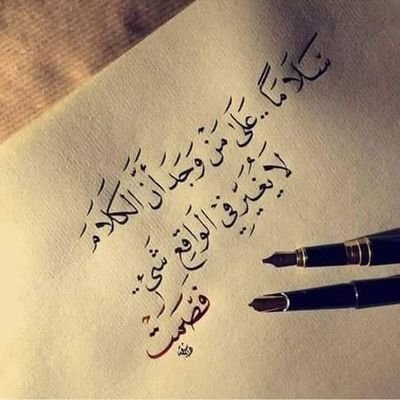 سَلَامًا.. عَلَى مَنْ وَجَدَ أَنَّ الْكَلَامَ
لَا يُغَيِّرُ فِي الْوَاقِعِ شَيْءٌ
فَصَمَتَ